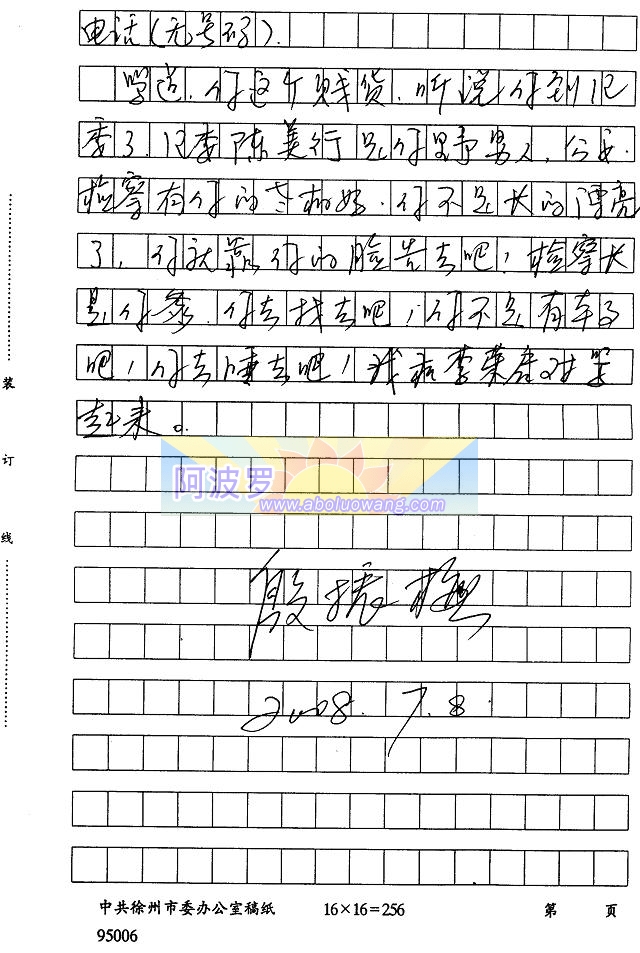 电话(无号码).
学道.你这个贱货.听说你到纪
委了.纪委陈美行是你野男人,公安.
检察有你的老相好.你不是长的漂亮
了,你就靠你的脸先去吧!检察长
是你爹.你去找去吧!你不是有车子
吧!你去睡去吧!我和李荣启对骂
起来。
阿波罗
www.aboluowang.com
殷振
2008.7.8
装
订
线
中共徐州市委办公室稿纸 16×16=256 第 页
95006